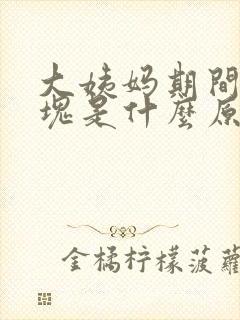 大姨妈期間
塊是什麼原
金橘柠檬菠蘿